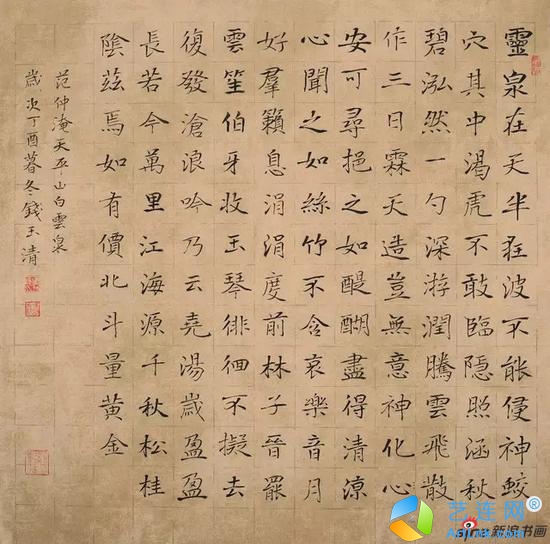 靈泉在天半狂波不能侵神蛟
穴其中渴虎不敢臨隱照涵秋
碧泓然一勺深游潤騰雲飛散
作三日霖天造豈無意神化心
安可尋挹之如醍醐盡得清涼
心聞之如絲竹不含哀樂音月
好羣籟息涓涓度前林子晉罷
雲笙伯牙收玉琴徘徊不擬去
復發滄浪吟乃云堯湯歲盈盈
長若今萬里江海源千秋松桂
陰茲焉如有價北斗量黃金
范仲淹天平山白雲泉
歲次丁酉暮冬錢玉清
艺连网
新浪书画